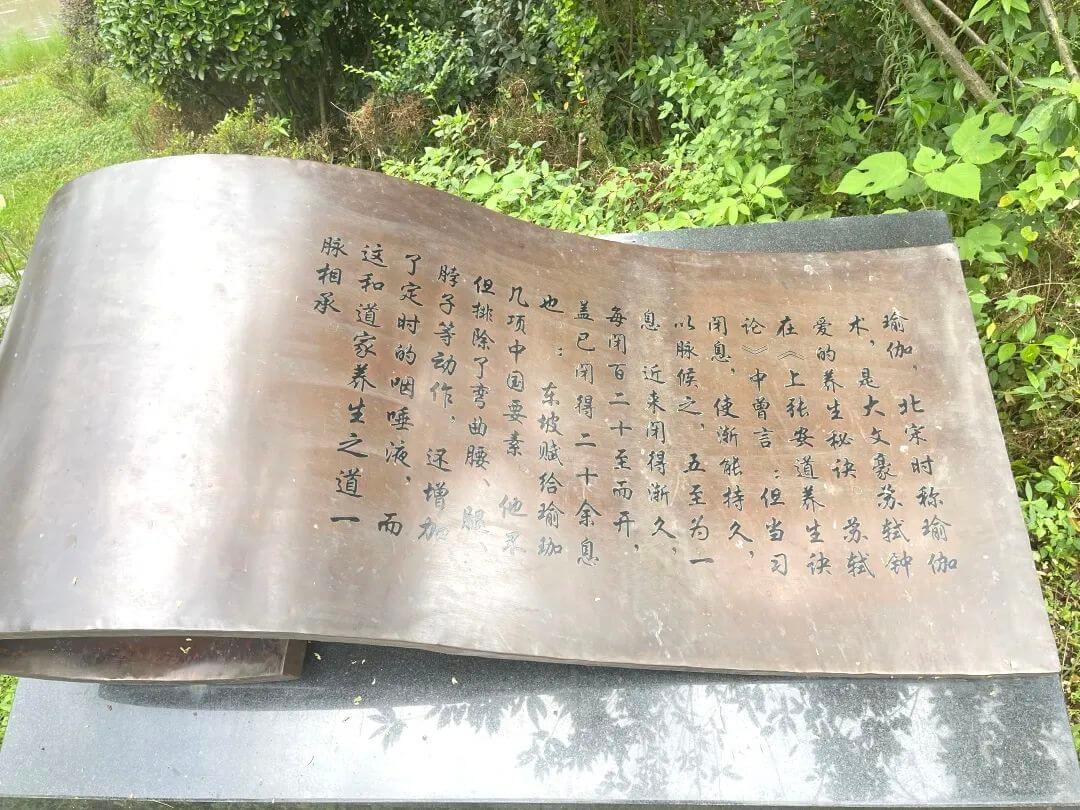 瑜伽，北宋时称瑜伽
术，是大文豪苏轼钟
爱的养生秘诀 苏轼
在《上张安道养生诀
论》中曾言：但当习
闭息，使渐能持久，
以脉候之，五至为一
息 近来闭得渐久，
每闭百二十至而开，
盖已闭得二十余息
也：东坡赋给瑜珈
几项中国要素 他不
但排除了弯曲腰、腿、
脖子等动作，还增加
了定时的咽唾液，而
这和道家养生之道一
脉相承